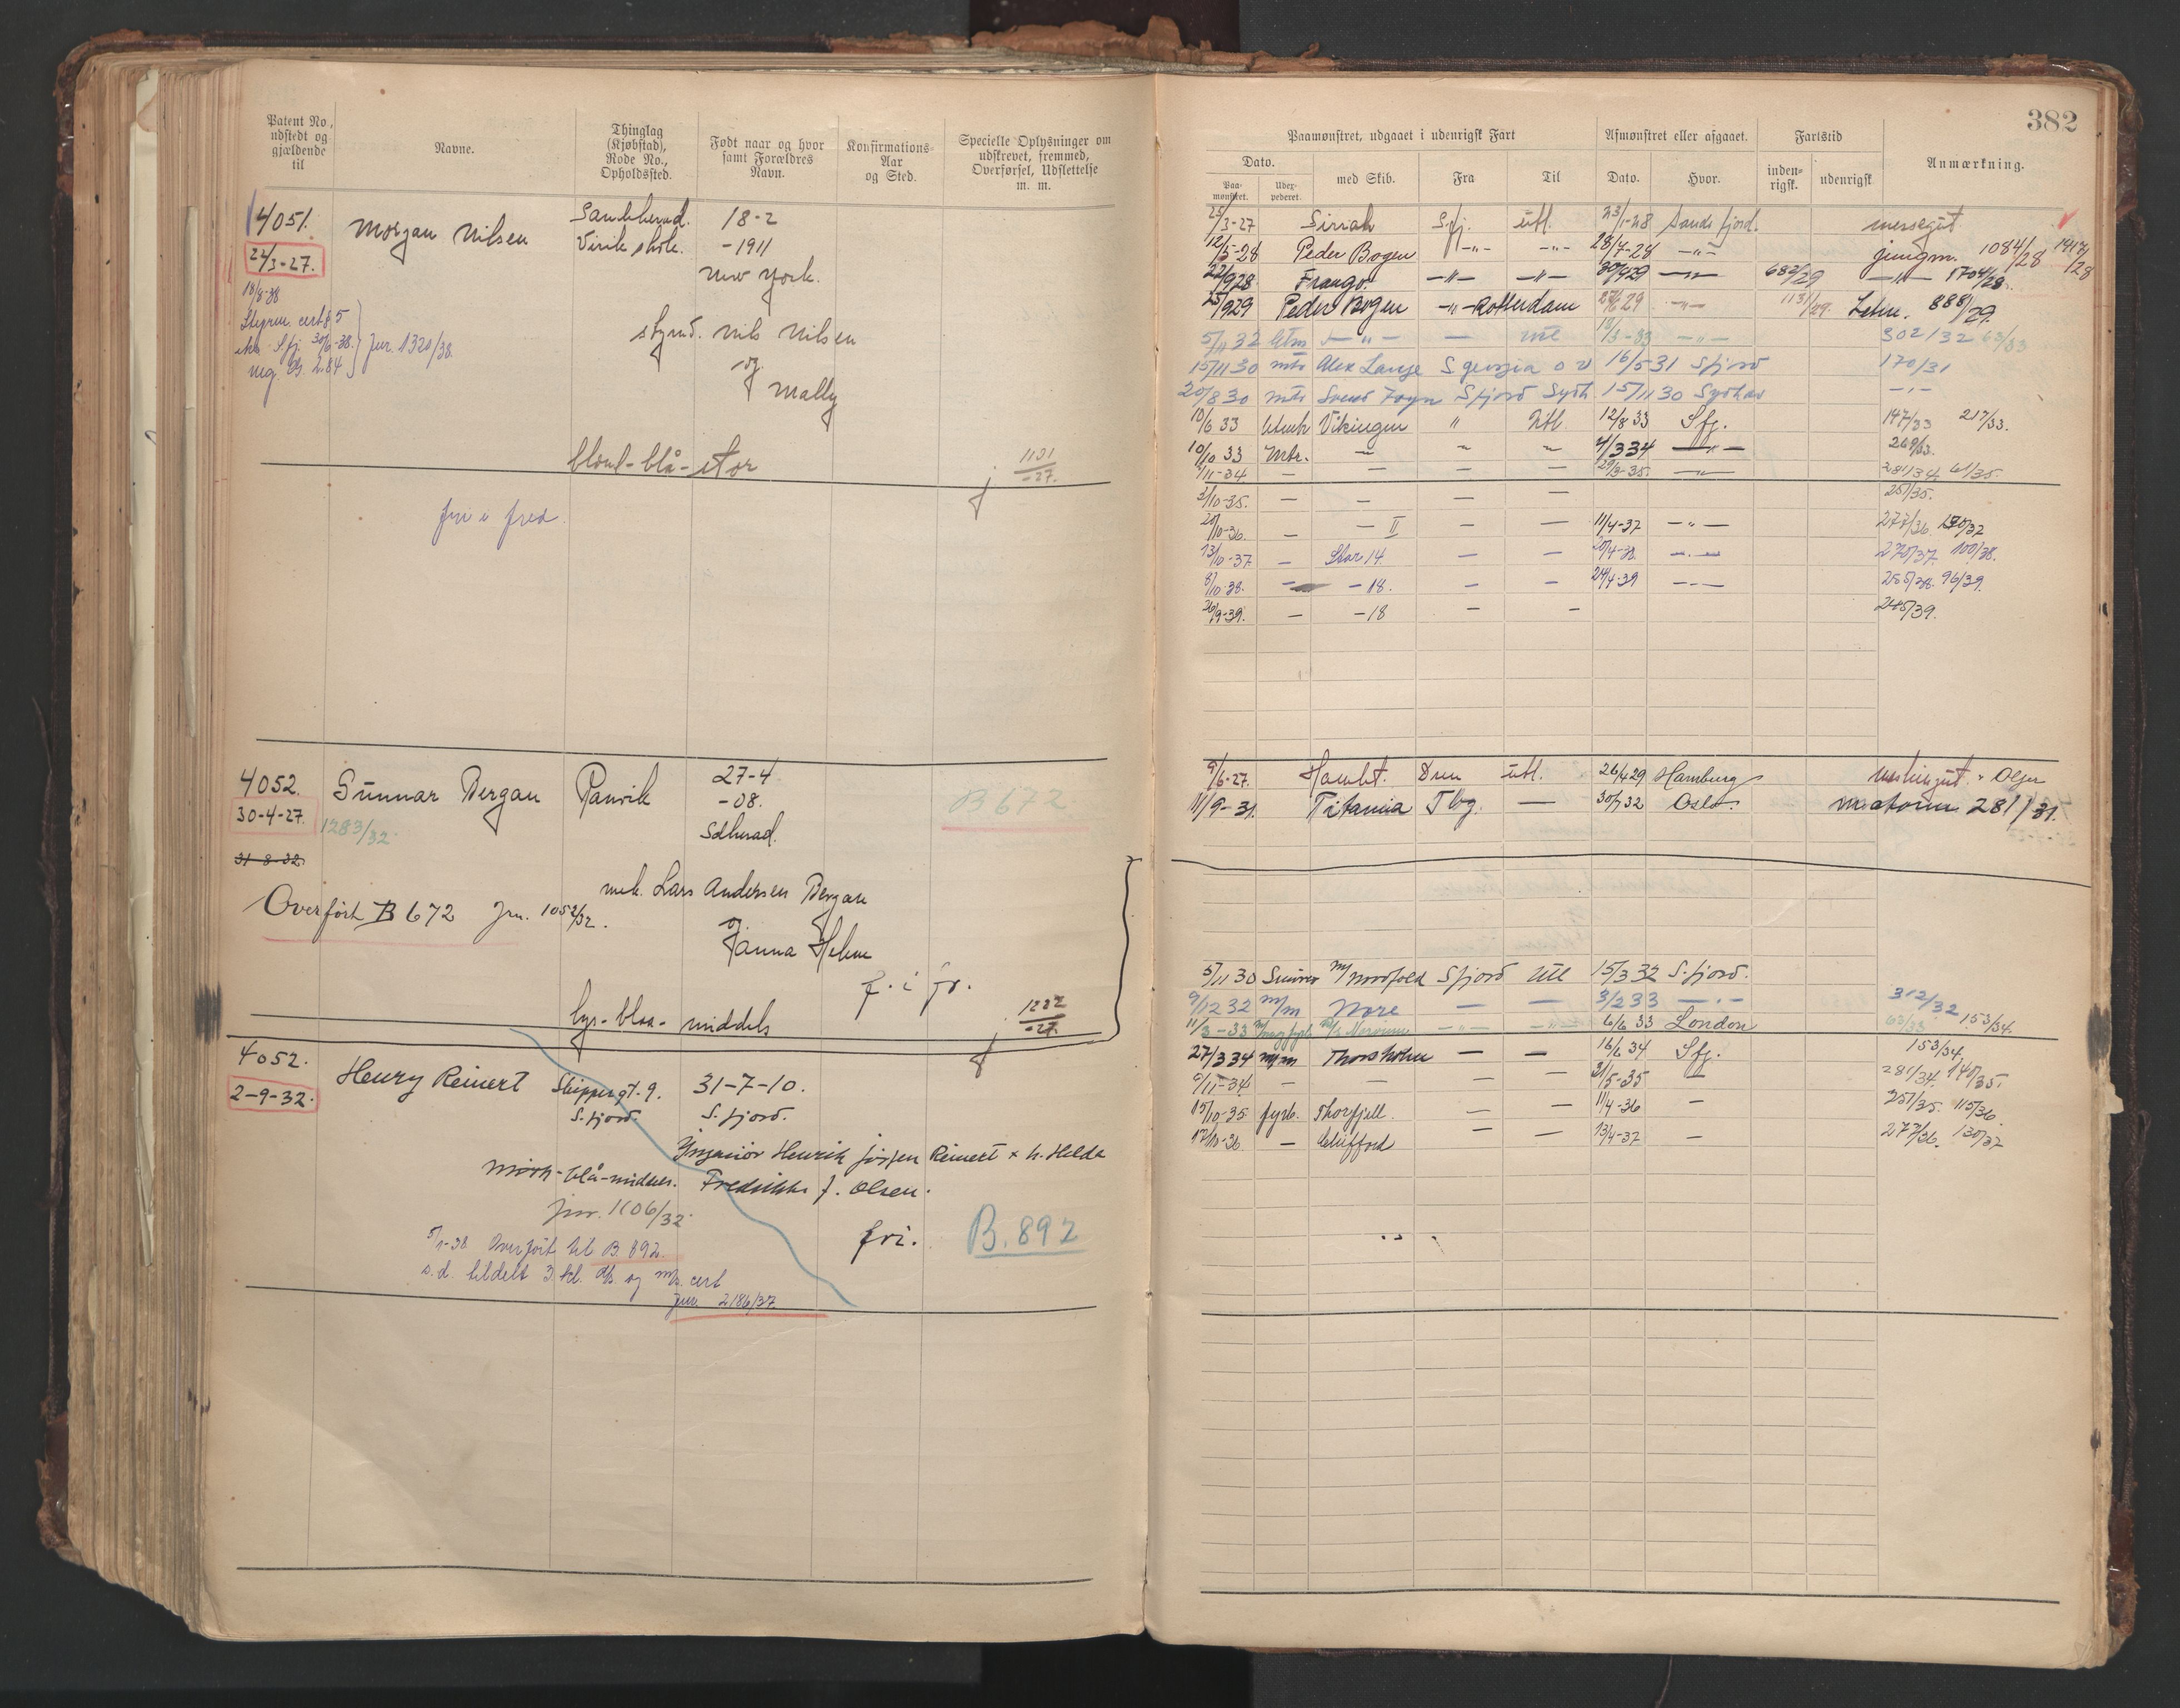 382
Patent No, udstedt og gjældende til
Navne.
Thinglag (Kjøbstad), Rode No., Opholdssted.
Født naar og hvor samt Forældres Navn.
Konfirmations-Aar og Sted.
Specielle Oplysninger om udskrevet, fremmed, Overførsel, Udslettelse m. m.
Paamønstret, udgaaet i udenrigsk Fart
Afmønstret eller afgaaet.
Fartstid
Anmærkning.
Dato.
med Skib.
Fra
Til
Dato.
Hvor.
inden-rigsk.
udenrigsk
Paa-mønstret.
4051. Morgan Nilsen Sandeherad. 18-2
Virik skole. -1911
22/3-27.
New York.
styrm. Nils Nilsen
og
Mally
jnr. 1320/38.
blond-blå-stor
1131/-27.
fri i fred.
/3-27 Sirrah Sfj. utl. 23/1-28 Sandefjord. messegut
12/5-28 Peder Bogen -"- -"- -"- jungm. 1084/28 1417/28
22/928 Frango. -"- -"- -"- 682/29 -"- 1704/28.
25/929 Peder Bogen -"- Rotterdam 29 -"- 1131/29. 888/29.
5/11 32 - " - — utl /3-33 -"- 302/32 63/33
15/11 30 mtr Alex Lange S georgia o v 16/5 31 Sfjord 170/31
20/8 30 mtr Svend Foyn Sfjord Sydh 15/11 30 Sydhav -"-
10/6 33 Vikingen " Utl. 12/8 33 Sfj. 147/33 217/33.
10/10 33 Mtr. — ~ ~ 4/334 -"- 269/33.
/11-34 — — — — 29/3-35. -"- 281/34 61/35.
2/10-35. — — — — 251/35.
/10-36. — — II — — 11/4-37 -"- 277/36. 130/37
13/10-37 — Star 14 — — /4-38 -"- 270/37. 100/38.
8/10-38. — - 18. — — 24/4-39 -"- 255/38. 96/39.
/9-39. — - 18 — — 245/39.
4052. Gunnar Bergan Ranvik 27-4
-08.
30-4-27. 1283/32.
Sdherad.
B 672
31-8-32
mek. Lars Andersen Bergan
Overført B 672 Jrn. 1052/32.
og
Hanna Helene
f. i fr.
lys-blaa-middels
1222/-27.
9/6-27. Hamlet. Drm utl. 26/429 Hamburg
11/9-31. Titania Tbg. — 30/732 Oslo. matoren 281/31.
4052. Henry Reinert Skippergt. 9. 31-7-10.
2-9-32.
S.fjord. S.fjord.
Ingeniør Henrik Jørgen Reinert + h. Helda
mörk-blå-middels. Fredrikke f. Olsen.
jnr. 1106/32.
5/1-38 Overført til B. 892.
fri. B. 892
s.d. tildelt 3. kl. d/s. og m/s. cert
jnr. 2186/37
5/11 30 m/ Nordfold Sfjord Utl 15/3 32 S.fjord.
9/12 32 m/m Nore — — 3/2 33 -"- 312/32
11/3-33 -"- -"- 6/6 33 London 63/33 153/34.
27/334 m/m Thorsholm — — 16/6 34 Sfj. 153/34.
9/11-34. — — — — 31/5-35 — 281/34. 140/35.
15/10-35 fyrb. Thorfjell. — — 11/4-36 — 251/35. 115/36.
17/10-36 — Clifford — — 13/4-37 — 277/36. 130/37